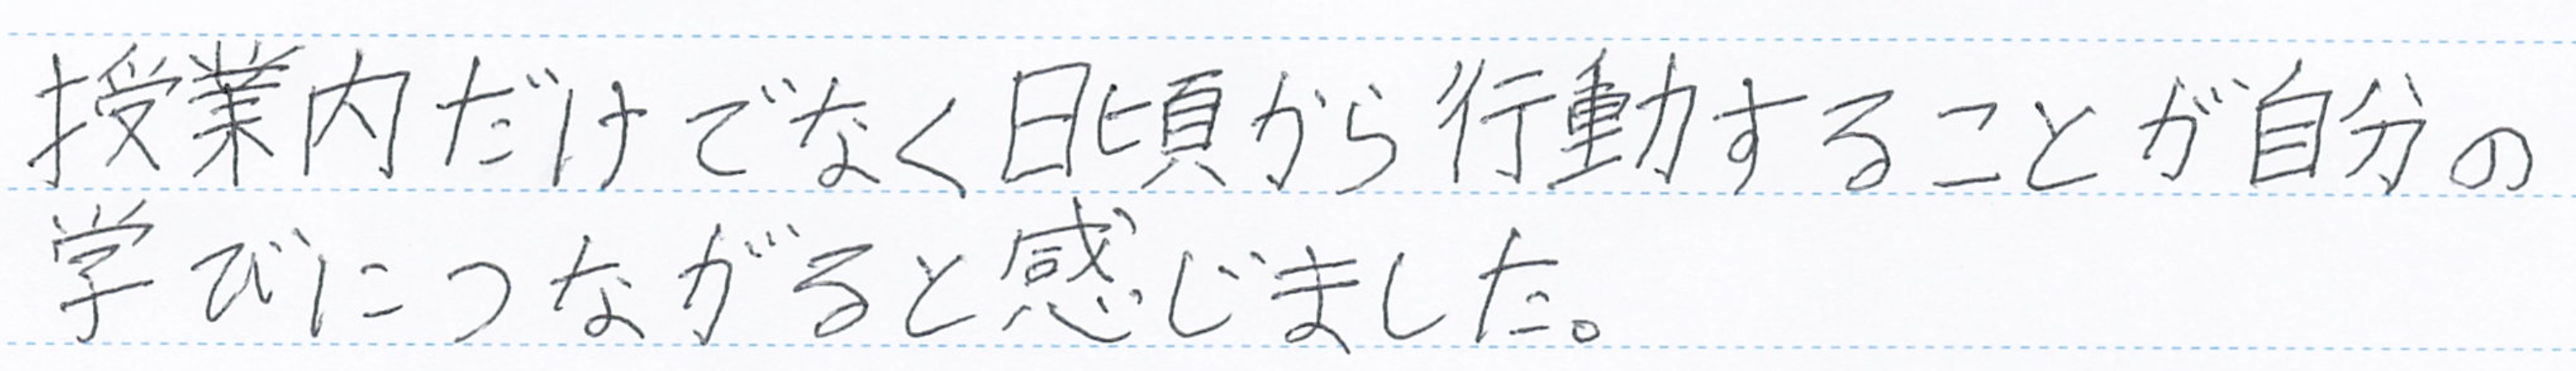 授業内だけでなく日頃から行動することが自分の
学びにつながると感じました。